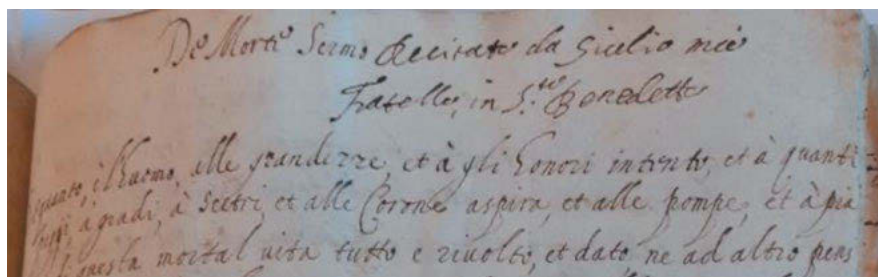 De Morte Sermo Recitato da Giulio mio
Fratello, in S.to Benedetto
quanto, il huomo, alle grandezze, et à gli honori intento, et à quanti
à gradi, à scetri, et alle Corone aspira, et alle pompe, et à pia
questa mortal vita tutto e rivolto, et dato, ne ad altro pens